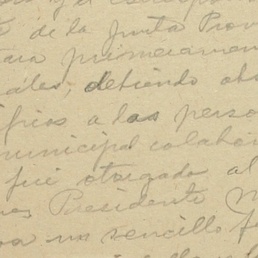 de la Junta Prov
para primeramen
ales, debiendo obs
ficios a las perso
municipal colabor
fué otorgado al
Presidente M
un sencillo